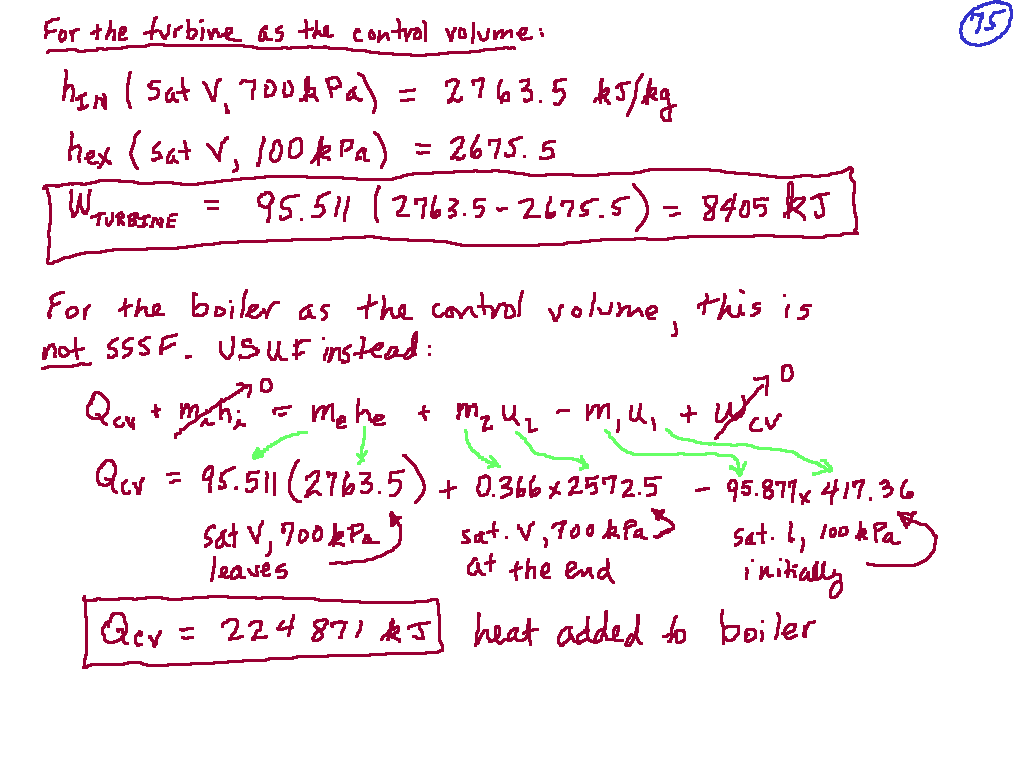 75
For the turbine as the control volume:
hIN (sat V, 700kPa) = 2763.5 kJ/kg
hex (sat V, 100kPa) = 2675.5
WTURBINE = 95.511 (2763.5-2675.5) = 8405 kJ
For the boiler as the control volume, this is
not SSSF. USUF instead:
0 0
Qcv + mihi = mehe + m2u2 - m1u1 + Wcv
Qcv = 95.511(2763.5) + 0.366x2572.5 - 95.877x417.36
sat V, 700kPa sat. V, 700kPa sat. l, 100kPa
leaves at the end initially
Qcv = 224 871 kJ heat added to boiler